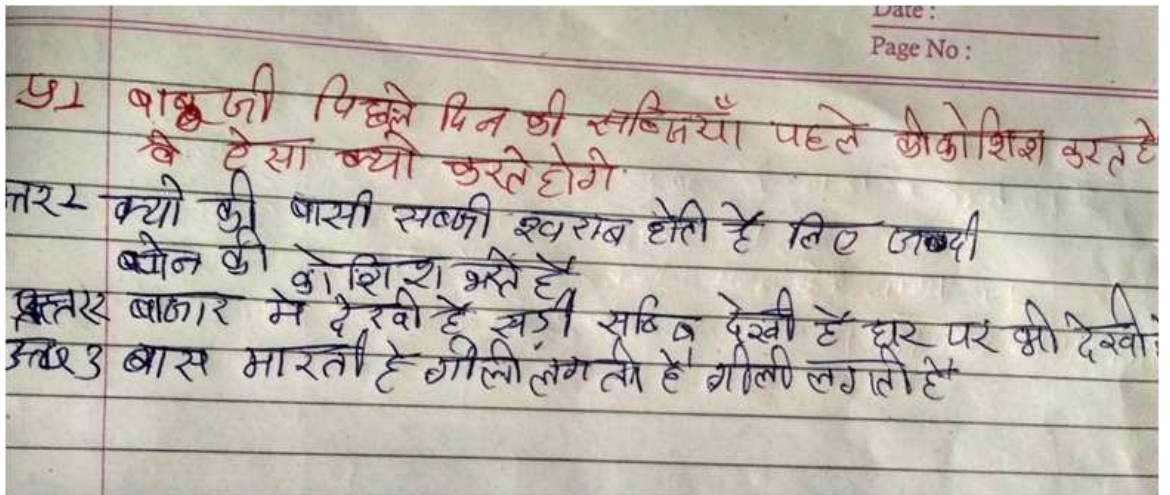 Date :
Page No :
प्र1 बाबूजी पिछले दिन की सब्जियाँ पहले की कोशिश करते है
वे ऐसा क्यो करते होगे
त्तर2 क्यो की बासी सब्जी खराब होती है लिए जल्दी
की कोशिश करते है
बाजार मे देखी है सड़ी देखी है घर पर भी देखी
3 बास मारती है गीली लगती है गीली लगती है